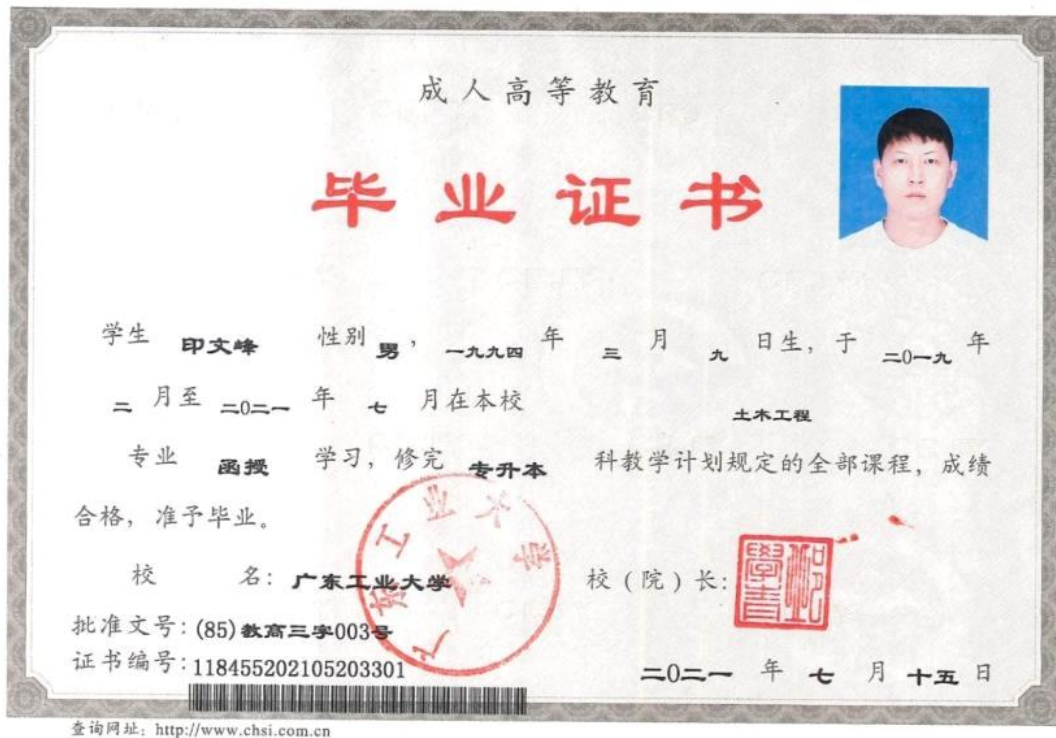 成人高等教育
毕业证书
学生 印文峰 性别 男，一九九四 年 三 月 九 日生，于 二0一九 年
二 月至 二0二一 年 七 月在本校 土木工程
专业 函授 学习，修完 专升本 科教学计划规定的全部课程，成绩
合格，准予毕业。
校 名：广东工业大学 校（院）长：
批准文号：(85)教高三字003号
证书编号：118455202105203301
二0二一 年 七 月 十五 日
查询网址：http://www.chsi.com.cn